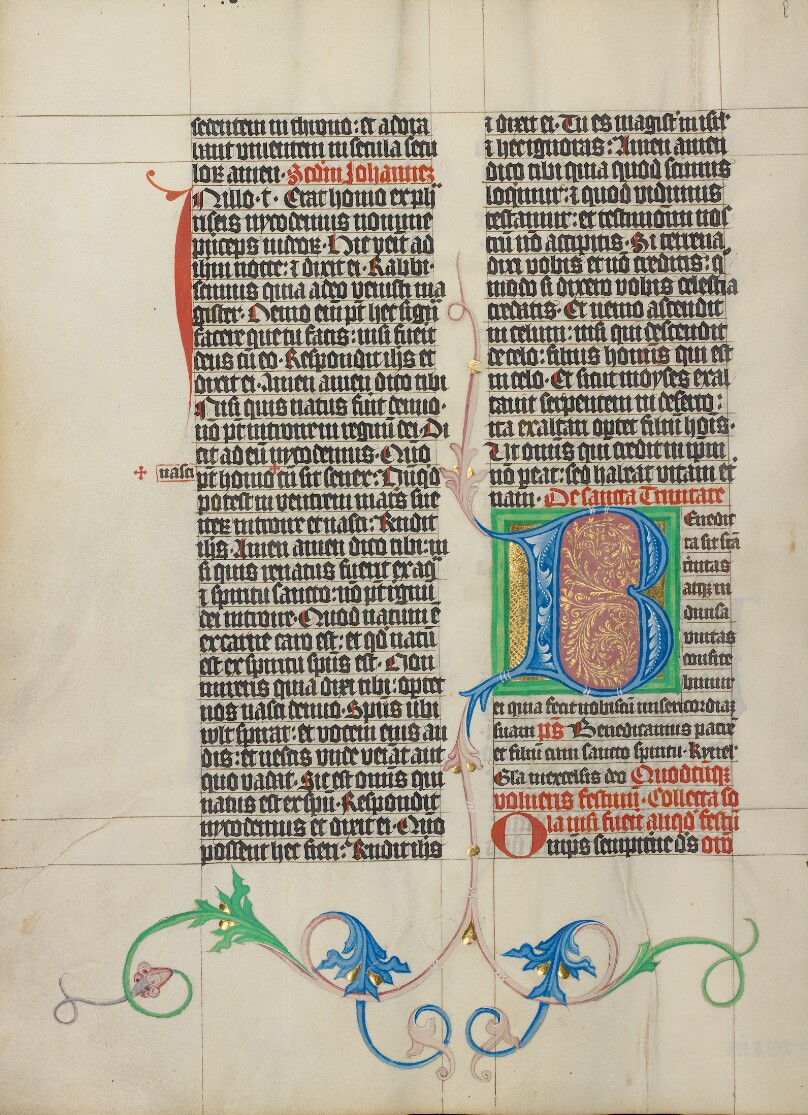 sedentem in throno: et adora
uerunt viuentem in secula secu
lor amen. Scdm Johannez
In illo. t. Erat homo ex phi
riseis nycodemus nomine
princeps iudeor. Hic venit ad
ihm nocte: et dixit ei. Rabbi.
scimus quia a deo venisti ma
gister. Nemo eni pt hec signa
facere que tu facis: nisi fueit
deus cu eo. Respondit ihs et
dixit ei. Amen amen dico tibi
Nisi quis natus fuit denuo.
no pt introire in regnu dei. Di
cit ad eu nycodemus. Quo
nasci
pt homo cu sit senex: Nuqd
potest in ventrem mats sue
iter introire et nasci: Rndit
ihs. Amen amen dico tibi: ni
si quis renatus fuerit ex aq
et spiritu sancto: no pt in regnu
dei introire. Quod natum e
ex carne caro est: et qd natu
est ex spiritu spus est. Non
mireris quia dixi tibi: optet
nos nasci denuo. Spus ubi
vlt spirat: et vocem eius au
dis: et nescis vnde veiat aut
quo vadat. Sic est omnis qui
natus est ex spu. Respondit
nycodemus et dixit ei. Quo
possent hec fieri: Rndit ihs
et dixit ei. Tu es magist in isrl
et hec ignoras: Amen amen
dico tibi quia quod scimus
loquimur: et quod vidimus
testamur: et testimoniu nos
tru no accipitis. Si terrena
dixi vobis et no creditis: q
modo si dixero vobis celestia
credatis. Et nemo ascendit
in celum: nisi qui descendit
de celo: filius hominis qui est
in celo. Et sicut moyses exal
tauit serpentem in deserto:
ita exaltari optet filiu hois.
Ut omnis qui credit in ipm
no peat: sed habeat vitam et
nam. De sancta Trinitate
Benedic
ta sit sca
trinitas
atqz in
diuisa
vnitas
confite
bimur
ei quia fecit nobiscu misericordiaz
suam ps Benedicamus patre
et filiu cum sancto spiritu. Kyriel
Gla in excelsis deo Quodcuqz
volueris festum. Collecta so
la nisi fueit aliqd festu
Omps sempitne ds oro